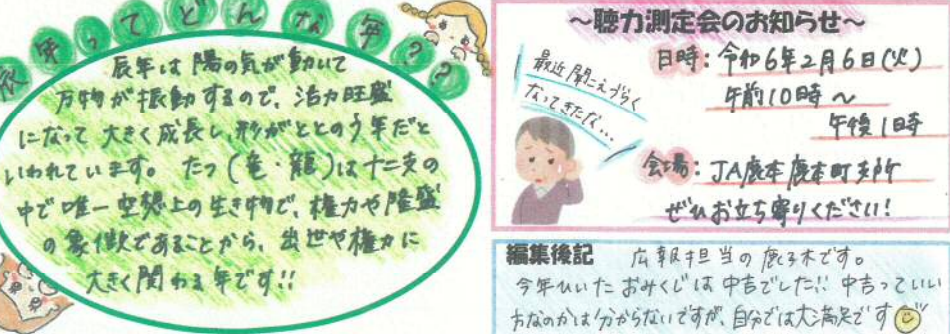 辰年ってどんな年??
辰年は陽の気が動いて
万物が振動するので、活力旺盛
になって大きく成長し、形がととのう年だと
いわれています。たつ(竜・龍)は十二支の
中で唯一空想上の生き物で、権力や隆盛
の象徴であることから、出世や権力に
大きく関わる年です!!
~聴力測定会のお知らせ~
最近聞こえづらく
なってきたな...
日時:令和6年2月6日(火)
午前10時~
午後1時
会場:JA鹿本鹿本町支所
ぜひお立ち寄りください!
編集後記 広報担当の鹿子木です。
今年ひいたおみくじは中吉でした!! 中吉っていい
方なのかは分からないですが、自分では大満足です